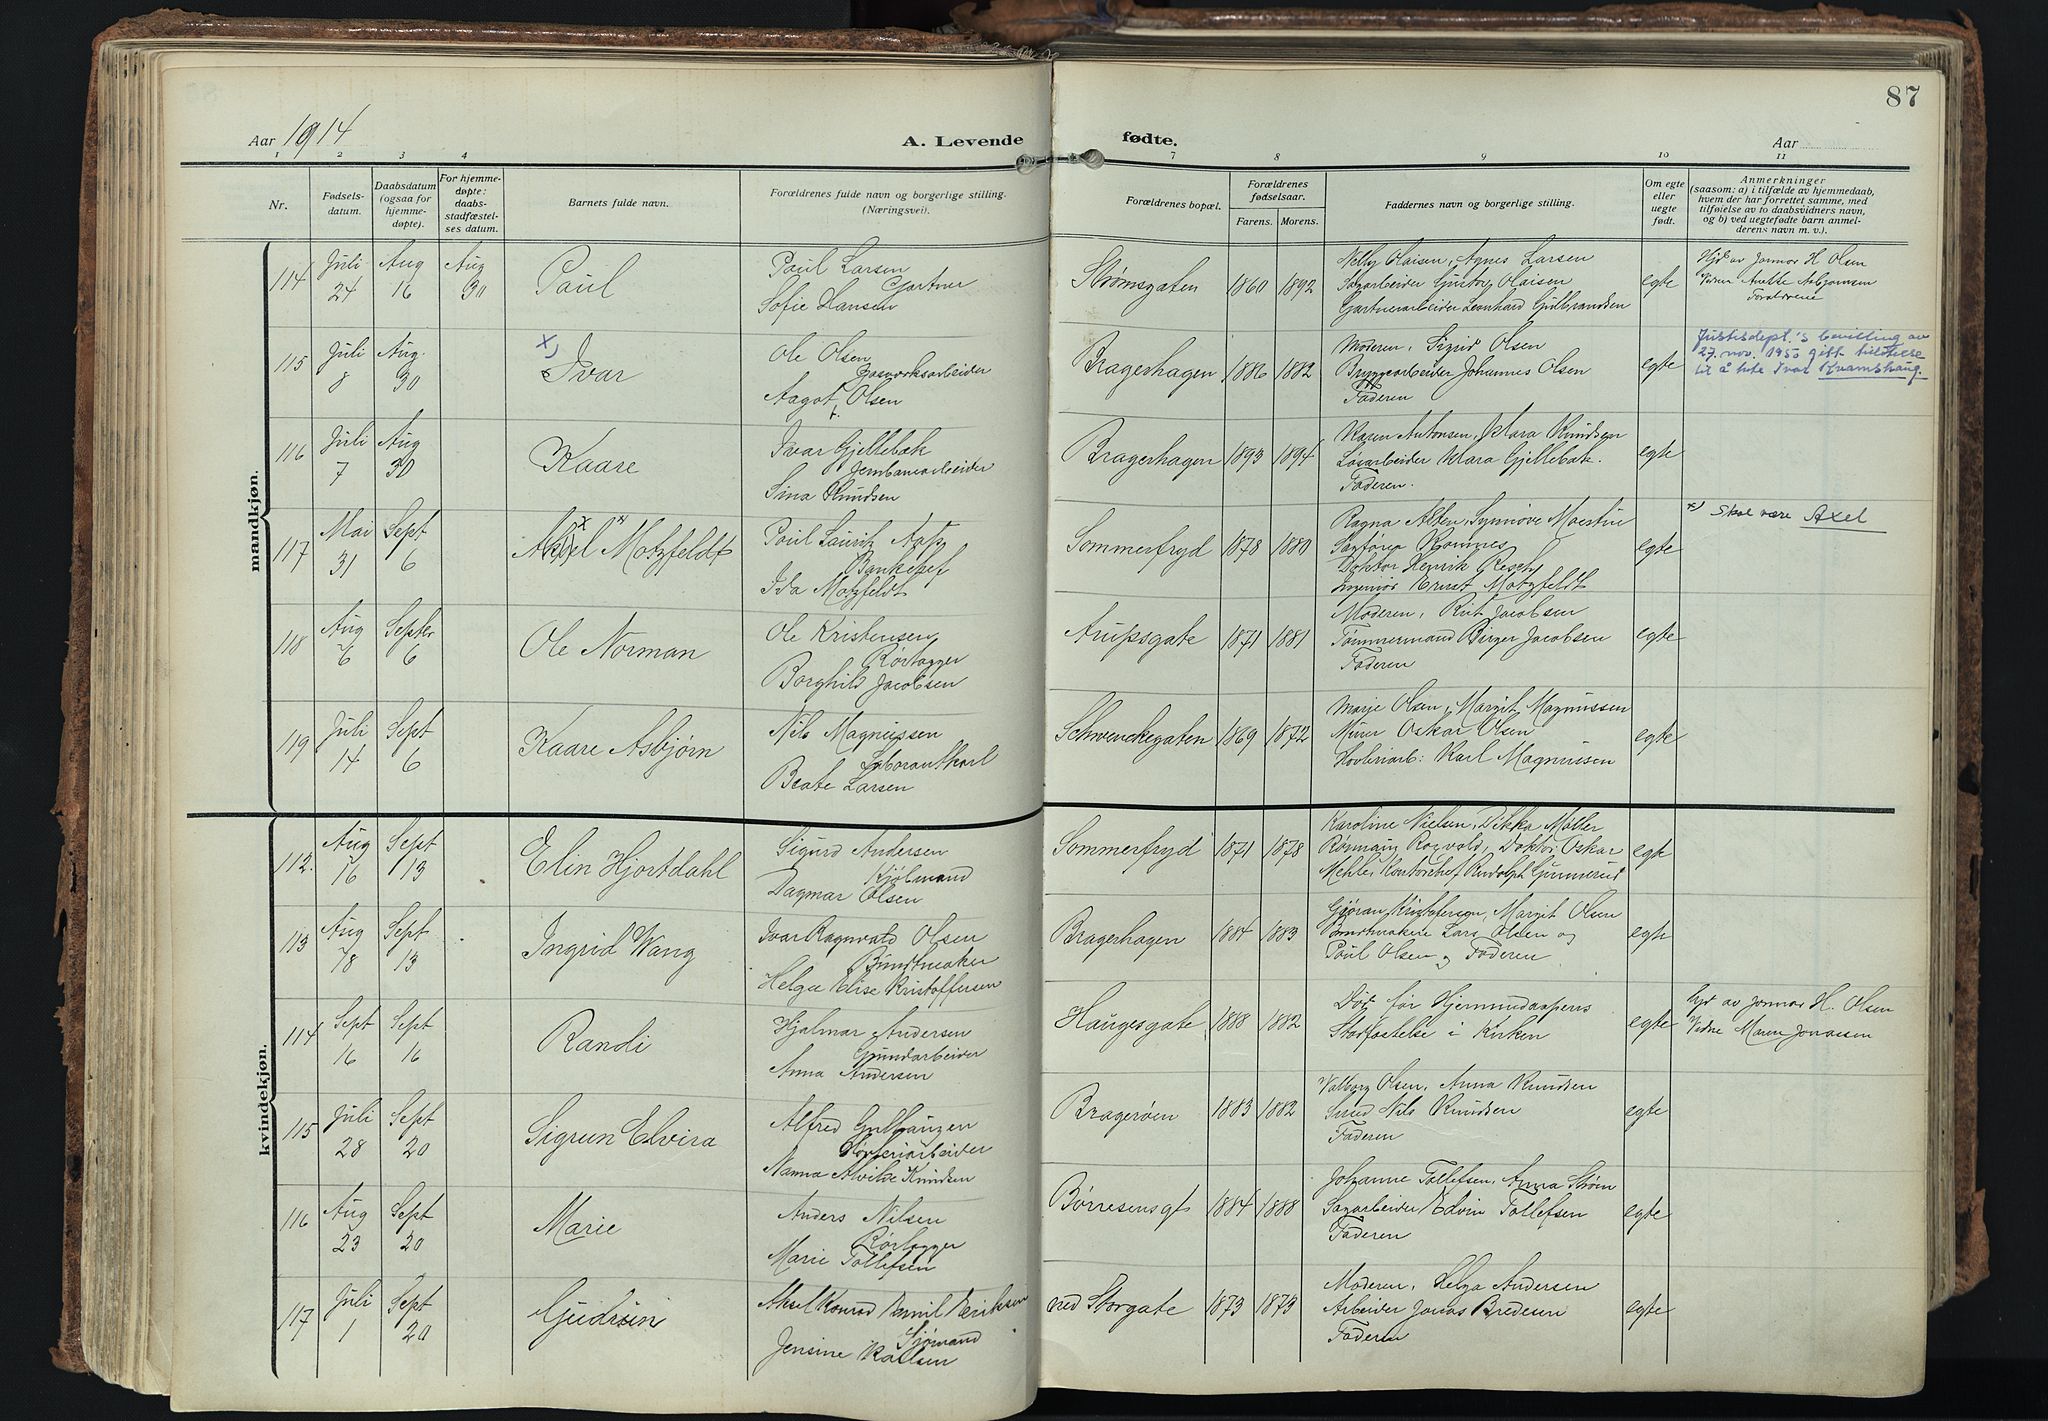 87
Aar 1914
A. Levende
fødte.
Aar
1 2 3 4 7 8 9 10 11
Nr.
Fødsels-
datum.
Daabsdatum
(ogsaa for
hjemme-
døpte).
For hjemme-
døpte:
daabs-
stadfæstel-
ses datum.
Barnets fulde navn.
Forældrenes fulde navn og borgerlige stilling.
(Næringsvei).
Forældrenes bopæl.
Forældrenes
fødselsaar.
Farens. Morens.
Faddernes navn og borgerlige stilling.
Om egte
eller
uegte
født.
Anmerkninger
(saasom: a) i tilfælde av hjemmedaab,
hvem der har forrettet samme, med
tilføielse av to daabsvidners navn,
og b) ved uegtefødte barn anmel-
derens navn m. v.).
mandkjøn.
114
Juli
24
Aug
16
Aug
30
Paul
Paul Larsen
Gartner
Sofie Hansen
Strømsgaten
1860 1892
Nelly Olaisen, Agnes Larsen
Sagarbeider Gustav Olaisen
Gartnerarbeider Leonhard Gulbrandsen
egte
Hjd av Jormor H Olsen
115
Juli
8
Aug.
30
x)
Ivar
Ole Olsen
Gasverksarbeider
Aagot Olsen
Bragerhagen
1886 1882
Moderen, Sigrid Olsen
Bryggearbeider Johannes Olsen
Faderen
egte
Justisdept.'s bevilling av
27. nov. 1953 gitt tillatelse
til å hete Ivar Kvamshaug.
116
Juli
7
Aug
30
Kaare
Ivar Gjellebæk
Jernbanearbeider
Sina Knudsen
Bragerhagen
1893 1894
Karen Antonsen, Klara Knudsen
Klara Gjellebæk.
Faderen.
egte
117
Mai
31
Sept
6
Aksel Motzfeldt
Paul Laurits Aass
Bankchef
Ida Motzfeldt
Sommerfryd
1878 1880
Ragna Alten, Synnøve
Doktor Henrik Resch
Ingeniør Ernst Motzfeldt
egte
x) Skal være Axel
118
Aug
6
Septer
6
Ole Norman
Ole Kristensen
Rørlægger
Borghild Jacobsen
1871 1881
Moderen, Rut Jacobsen
Tømmermand Birger Jacobsen
Faderen
egte
119
Juli
14
Sept
6
Kaare Asbjørn
Nils Magnussen
Laborantkarl
Beate Larsen
Schwenckegaten
1869 1872
Marie Olsen, Margit Magnussen
Murer Oskar Olsen
Høvleriarb: Karl Magnussen
egte
kvindekjøn.
112.
Aug
16
Sept
13
Elin Hjortdahl
Sigurd Andersen
Kjølmand
Dagmar Olsen
Sommerfryd
1871 1878
Karoline Nielsen, Dikka Møller
Ragvald, Doktor Oskar
Mehle, Kontorchef Rudolph Gunnerud
egte
113
Aug
18
Sept
13
Ingrid Wang
Ivar Ragnvald Olsen
Buntmaker
Helga Elise Kristoffersen
Bragerhagen
1884 1883
Gjøran Kristofersen, Margit Olsen
Buntmakere Lars Olsen og
Paul Olsen og Faderen
egte
114
Sept
16
Sept
16
Randi
Hjalmar Andersen
Grundarbeider
Anna Andersen
Haugesgate
1888 1882
Død før Hjemmedaapens
Stadfæstelse i Kirken
egte
hjd av Jormor H. Olsen
Vidne Maren Jonassen
115
Juli
28
Sept
20
Sigrun Elvira
Alfred Gulhaugen
Høvleriarbeider
Nanna Alvilde Knudsen
Bragerøen
1883 1882
Valborg Olsen, Anna Knudsen
Smed Nils Knudsen
Faderen
egte
116
Aug
23
Sept
20
Marie
Anders Nilsen
Rørlægger
Marie Tollefsen
Børresensgt
1884 1888
Johanne Tollefsen, Anna Strøm
Sagarbeider Edvin Tollefsen
Faderen
egte
117
Juli
1
Sept
20
Gudrun
Aksel Konrad Emil Eriksen
Sjømand
Jensine Karlsen
ned Storgate
1873 1873
Moderen, Helga Andersen
Arbeider Jonas Bredesen
Faderen
egte